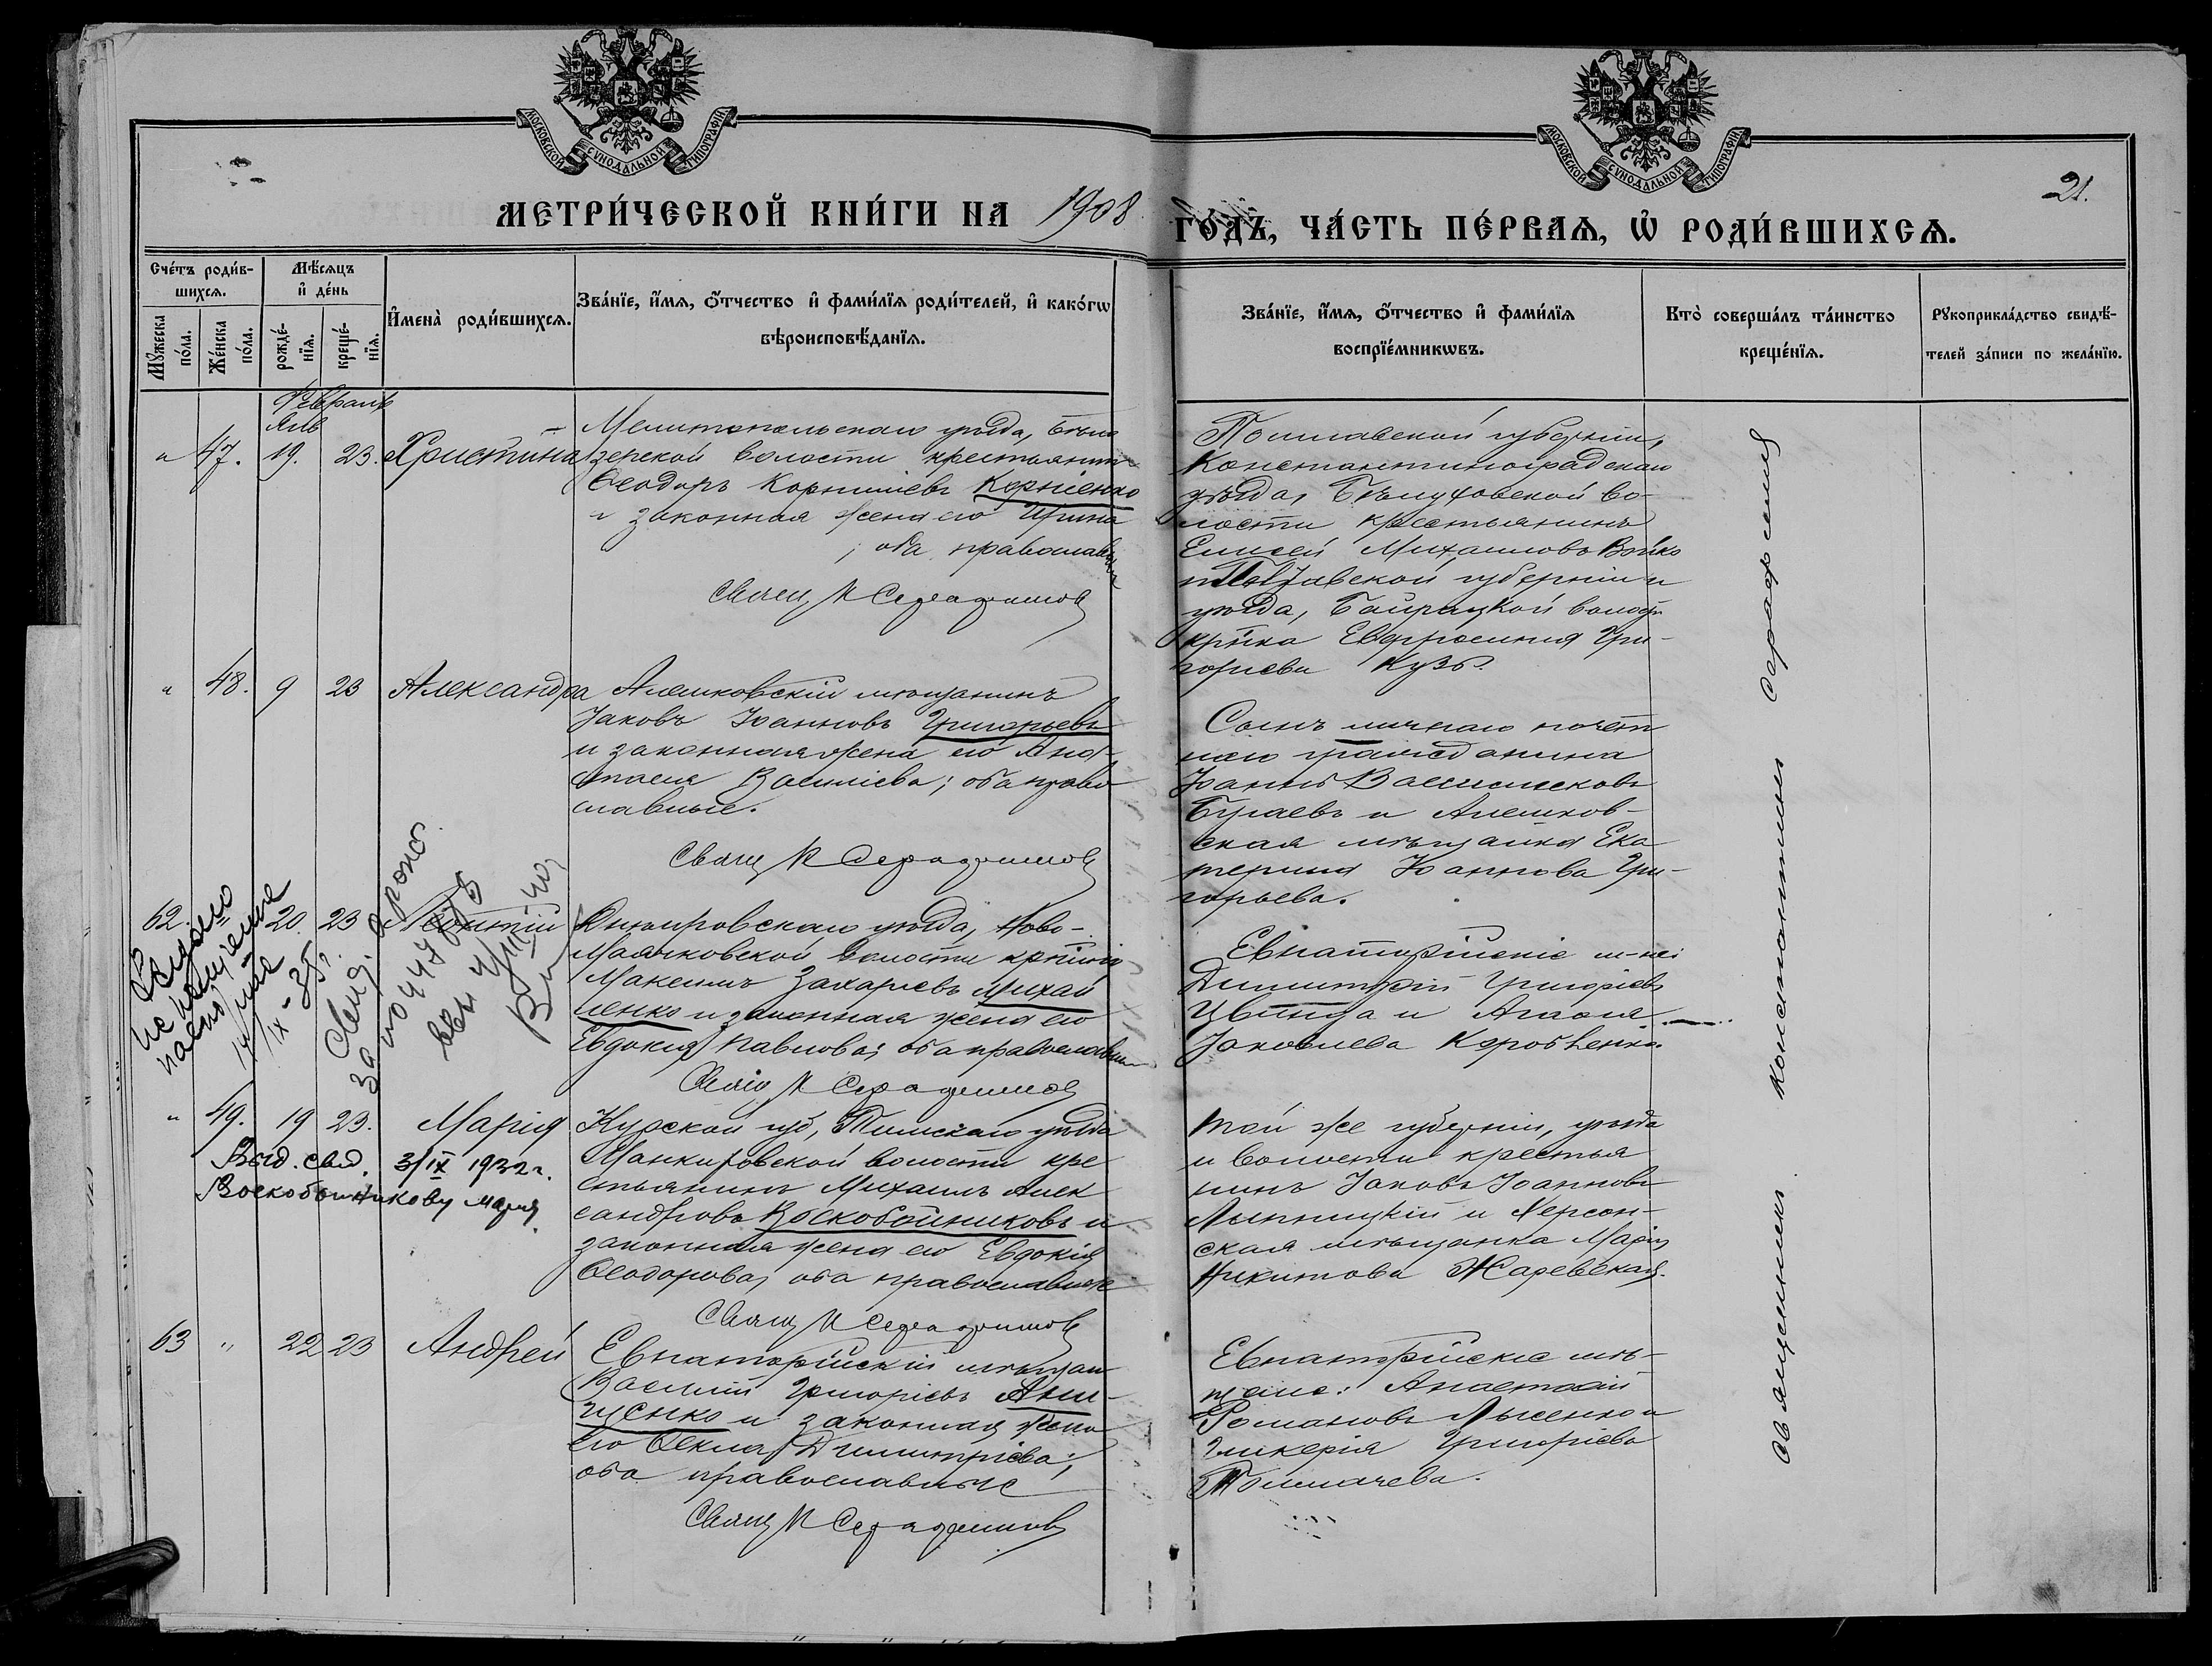 МОСКОВСКОЙ СѴНОДАЛЬНОЙ ТИПОГРАФІИ
МОСКОВСКОЙ СѴНОДАЛЬНОЙ ТИПОГРАФІИ
21.
МЕТРИ́ЧЕСКОЙ КНИ́ГИ НА 1908 ГО́ДЪ, ЧА́СТЬ ПЕ́РВАѦ, Ѡ҆ РОДИ́ВШИХСѦ.
Сче́тъ роди́в-
шихсѧ.
Мꙋ́жеска
по́ла.
Же́нска
по́ла.
Мѣ́сѧцъ
и҆ де́нь
рожде́-
нїѧ.
креще́-
нїѧ.
И҆мена̀ роди́вшихсѧ.
Зва́нїе, и҆́мѧ, ѻ҆́тчество и҆ фами́лїѧ роди́телей, и҆ како́гѡ
вѣроисповѣ́данїѧ.
Зва́нїе, и҆́мѧ, ѻ҆́тчество и҆ фами́лїѧ
воспрїе́мникѡвъ.
Кто̀ соверша́лъ та́инство
креще́нїѧ.
Рꙋкоприкла́дство свидѣ́-
телей за́писи по жела́нїю.
Февраль
" 47. 19. 23. Христина
Мелитопольскаго уѣзда, Бѣло
зерской волости крестьянинъ
Ѳеодоръ Корниліевъ Корніенко
и законная жена его Ирина
; оба православные
Свящ К Серафимовъ
Полтавской губерніи,
Константиноградскаго
уѣзда, Бѣлуховской во-
лости крестьянинъ
Елисей Михаиловъ Бойко
и Полтавской губерніи и
уѣзда, Байрацкой волости
кр-нка Евфросинія Гри-
горіева Кузь.
" 48. 9 23 Александра
Алешковскій мѣщанинъ
Іаковъ Іоанновъ Григорьевъ
и законная жена его Ана-
стасія Василіева; оба право
славные.
Свящ К Серафимовъ
Сынъ личнаго почет
наго гражданина
Іоаннъ
Бугаевъ и Алешков-
ская мѣщанка Ека
терина Іоаннова Гри-
горьева.
62. " 20. 23 Леонтій
Днѣпровскаго уѣзда, Ново-
Маячковской волости кр-нинъ
Максимъ Захаріевъ Михай
ленко и законная жена его
Евдокія Павлова; оба православные
Свящ К Серафимовъ
Евпаторійскіе м-не:
Димитрій Григоріевъ
Цвинда и Агафія
Іаковлева Коробченко.
IX - 35 г.
Свид.
за
" 49. 19 23. Марія
Выд. свид. 3/IX 1932 г.
Воскобойникову Мария
Курской губ, Тимскаго уѣзда
волости кре
стьянинъ Михаилъ Алек
сандровъ Воскобойниковъ и
законная жена его Евдокія
Ѳеодорова, оба православные
Свящ К Серафимовъ
Той же губерніи, уѣзда
и волости крестья
нинъ Іаковъ Іоанновъ
и Херсон-
ская мѣщанка Марія
Никитова Жаревская.
63 " 22 23 Андрей
Евпаторійскій мѣщан
Василій Григоріевъ Они-
щенко и законная жена
его Ѳекла Димитріева;
оба православные
Свящ К Серафимовъ
Евпаторійскіе мѣ-
щане: Анастасій
Романовъ Лысенко и
Гликерія Григоріева
Толмачева.
Священникъ Константинъ Серафимовъ